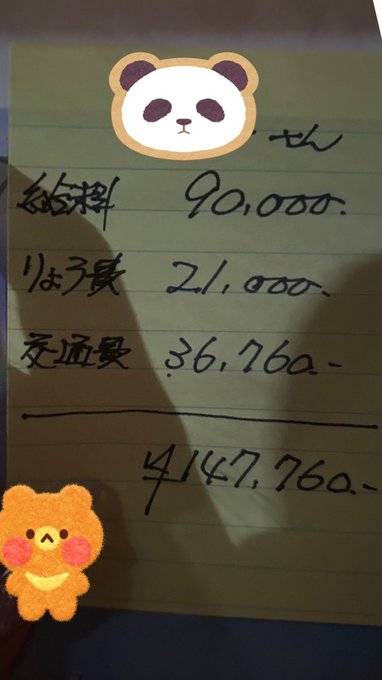 せん
給料 90,000.
りょう費 21,000.
交通費 36,760.-
¥147,760.-